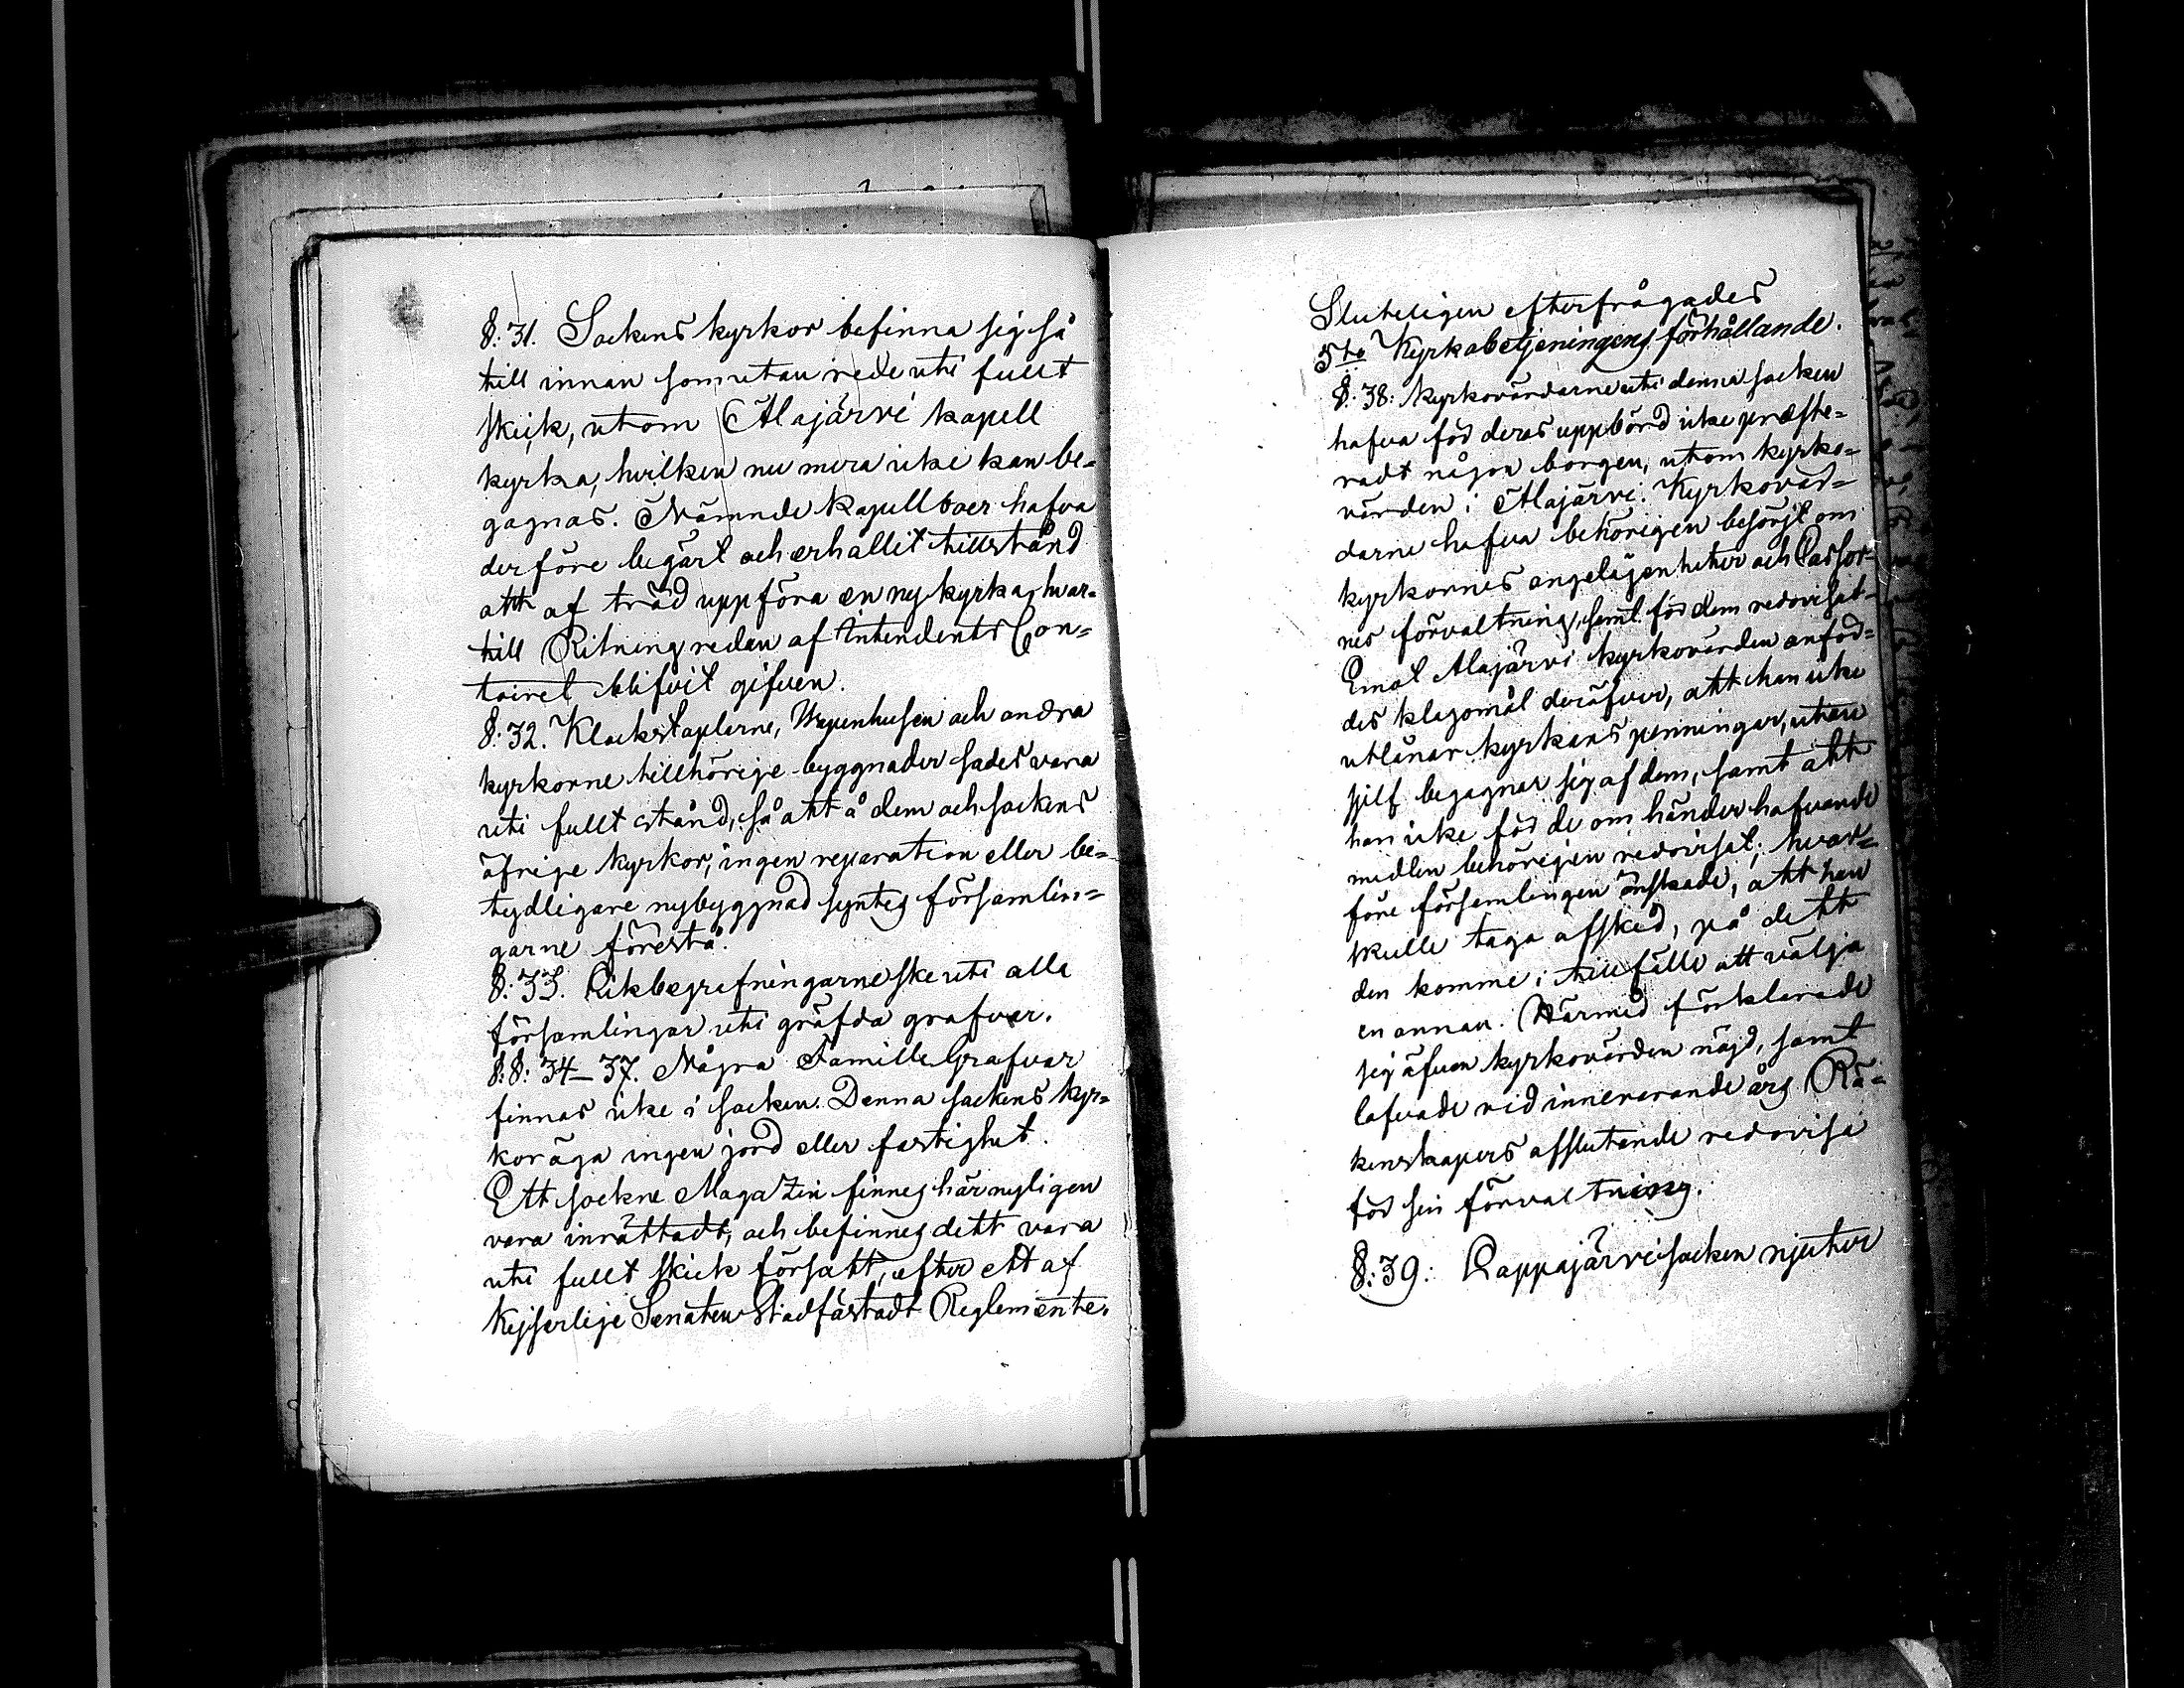 §: 31. Sockens kyrkor befinna sig så
till innan som utan rede uti fullt
skick, utom Alajärvi kapell
kyrka, hvilken nu mera icke kan be-
gagnas. Nämnde kapellboer hafva
derföre begärt och erhållit tillstånd
att af träd uppföra en ny kyrka, hvar-
till Ritning redan af Intendents Con-
toiret blifvit gifven.
§: 32. Klockstaplarne, Wapenhusen och andra
kyrkorne tillhörige byggnader sades vara
uti fullt stånd, så att å dem och sockens
öfrige kyrkor, ingen reparation eller be-
tydligare nybyggnad syntes församlin=
garne förestå.
§: 33. Likbegrafningarne ske uti alla
församlingar uti gräfda grafvar.
§:§: 34–37. Några Famille Grafvar
finnas icke i socken. Denna sockens kyr=
kor äga ingen jord eller fastighet.
Ett sockne Magazin finnes här nyligen
vara inrättadt, och befinnes dett vara
uti fullt skick försatt, efter ett af
Kejserlige Senaten Stadfästadt Reglemente.
Sluteligen efterfrågades
5to Kyrkobetjeningens förhållande.
§: 38: Kyrkovärdarne uti denna socken
hafva för deras uppbörd icke præste=
radt någon borgen, utom kyrko=
värden i Alajärvi. Kyrkovär=
darne hafva behörigen besörjt om
kyrkornes angelägenheter och Cassor=
nes förvaltning, samt för dem redovisat.
Emot Alajärvi kyrkovärden anför=
des klagomål deröfver, att han icke
utlånar kyrkans penningar, utan
sjelf begagnar sig af dem, samt att
han icke för de om händer hafvande
medlen behörigen redovisat; hvar=
före församlingen önskade, att han
skulle taga afsked, på dett
den komme i tillfälle att välja
en annan. Härmed förklarade
sig äfven kyrkovärden nöjd, samt
lofvade vid innevarande års Rä=
kenskapers afslutande redovisa
för sin förvaltning.
§: 39: Lappajärvi socken njuter